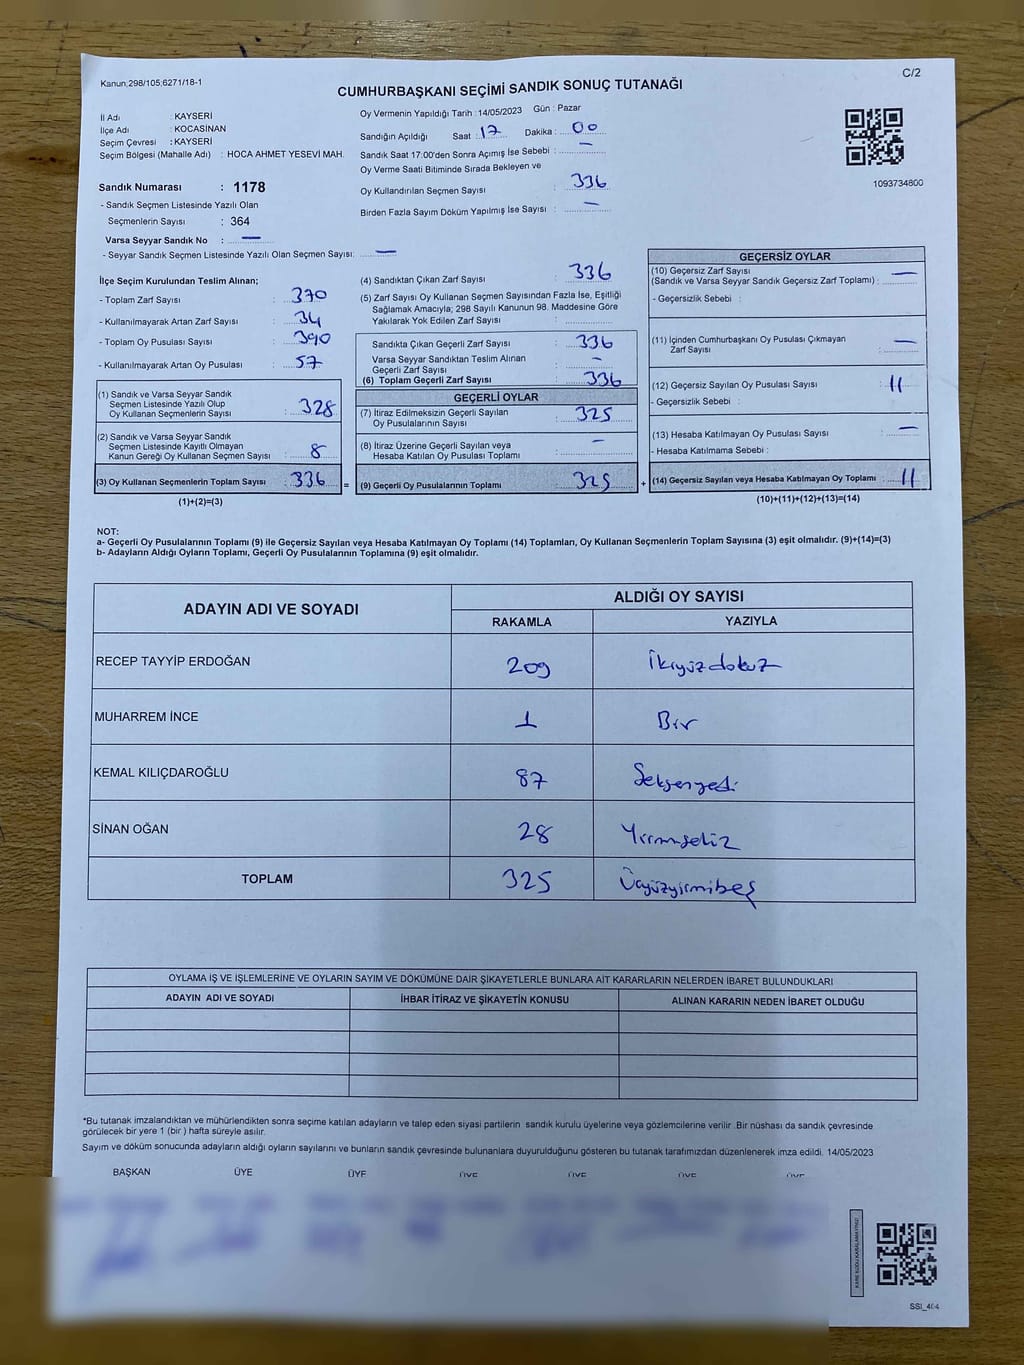 Kanun;298/105;6271/18-1
C/2
CUMHURBAŞKANI SEÇİMİ SANDIK SONUÇ TUTANAĞI
İl Adı : KAYSERİ
İlçe Adı : KOCASİNAN
Seçim Çevresi : KAYSERİ
Seçim Bölgesi (Mahalle Adı) : HOCA AHMET YESEVİ MAH.
Sandık Numarası : 1178
- Sandık Seçmen Listesinde Yazılı Olan
Seçmenlerin Sayısı : 364
Varsa Seyyar Sandık No : —
- Seyyar Sandık Seçmen Listesinde Yazılı Olan Seçmen Sayısı: —
Oy Vermenin Yapıldığı Tarih : 14/05/2023 Gün : Pazar
Sandığın Açıldığı Saat : 17 Dakika : 00
Sandık Saat 17:00'den Sonra Açımış İse Sebebi : —
Oy Verme Saati Bitiminde Sırada Bekleyen ve
Oy Kullandırılan Seçmen Sayısı : 336
Birden Fazla Sayım Döküm Yapılmış İse Sayısı : —
1093734800
İlçe Seçim Kurulundan Teslim Alınan;
- Toplam Zarf Sayısı : 370
- Kullanılmayarak Artan Zarf Sayısı : 34
- Toplam Oy Pusulası Sayısı : 390
- Kullanılmayarak Artan Oy Pusulası : 57
(1) Sandık ve Varsa Seyyar Sandık
Seçmen Listesinde Yazılı Olup
Oy Kullanan Seçmenlerin Sayısı : 328
(2) Sandık ve Varsa Seyyar Sandık
Seçmen Listesinde Kayıtlı Olmayan
Kanun Gereği Oy Kullanan Seçmen Sayısı : 8
(3) Oy Kullanan Seçmenlerin Toplam Sayısı : 336 =
(1)+(2)=(3)
(4) Sandıktan Çıkan Zarf Sayısı : 336
(5) Zarf Sayısı Oy Kullanan Seçmen Sayısından Fazla İse, Eşitliği
Sağlamak Amacıyla; 298 Sayılı Kanunun 98. Maddesine Göre
Yakılarak Yok Edilen Zarf Sayısı :
Sandıkta Çıkan Geçerli Zarf Sayısı : 336
Varsa Seyyar Sandıktan Teslim Alınan
Geçerli Zarf Sayısı : —
(6) Toplam Geçerli Zarf Sayısı : 336
GEÇERLİ OYLAR
(7) İtiraz Edilmeksizin Geçerli Sayılan
Oy Pusulalarının Sayısı : 325
(8) İtiraz Üzerine Geçerli Sayılan veya
Hesaba Katılan Oy Pusulası Toplamı : —
(9) Geçerli Oy Pusulalarının Toplamı : 325 +
GEÇERSİZ OYLAR
(10) Geçersiz Zarf Sayısı
(Sandık ve Varsa Seyyar Sandık Geçersiz Zarf Toplamı) : —
- Geçersizlik Sebebi :
(11) İçinden Cumhurbaşkanı Oy Pusulası Çıkmayan
Zarf Sayısı : —
(12) Geçersiz Sayılan Oy Pusulası Sayısı : 11
- Geçersizlik Sebebi :
(13) Hesaba Katılmayan Oy Pusulası Sayısı : —
- Hesaba Katılmama Sebebi :
(14) Geçersiz Sayılan veya Hesaba Katılmayan Oy Toplamı : 11
(10)+(11)+(12)+(13)=(14)
NOT:
a- Geçerli Oy Pusulalarının Toplamı (9) ile Geçersiz Sayılan veya Hesaba Katılmayan Oy Toplamı (14) Toplamları, Oy Kullanan Seçmenlerin Toplam Sayısına (3) eşit olmalıdır. (9)+(14)=(3)
b- Adayların Aldığı Oyların Toplamı, Geçerli Oy Pusulalarının Toplamına (9) eşit olmalıdır.
ADAYIN ADI VE SOYADI
ALDIĞI OY SAYISI
RAKAMLA YAZIYLA
RECEP TAYYİP ERDOĞAN 209 İkiyüzdokuz
MUHARREM İNCE 1 Bir
KEMAL KILIÇDAROĞLU 87 Seksenyedi
SİNAN OĞAN 28 Yirmisekiz
TOPLAM 325 Üçyüzyirmibeş
OYLAMA İŞ VE İŞLEMLERİNE VE OYLARIN SAYIM VE DÖKÜMÜNE DAİR ŞİKAYETLERLE BUNLARA AİT KARARLARIN NELERDEN İBARET BULUNDUKLARI
ADAYIN ADI VE SOYADI İHBAR İTİRAZ VE ŞİKAYETİN KONUSU ALINAN KARARIN NEDEN İBARET OLDUĞU
*Bu tutanak imzalandıktan ve mühürlendikten sonra seçime katılan adayların ve talep eden siyasi partilerin sandık kurulu üyelerine veya gözlemcilerine verilir .Bir nüshası da sandık çevresinde
görülecek bir yere 1 (bir ) hafta süreyle asılır.
Sayım ve döküm sonucunda adayların aldığı oyların sayılarını ve bunların sandık çevresinde bulunanlara duyurulduğunu gösteren bu tutanak tarafımızdan düzenlenerek imza edildi. 14/05/2023
BAŞKAN ÜYE ÜYE ÜYE ÜYE ÜYE ÜYE
SSI_404